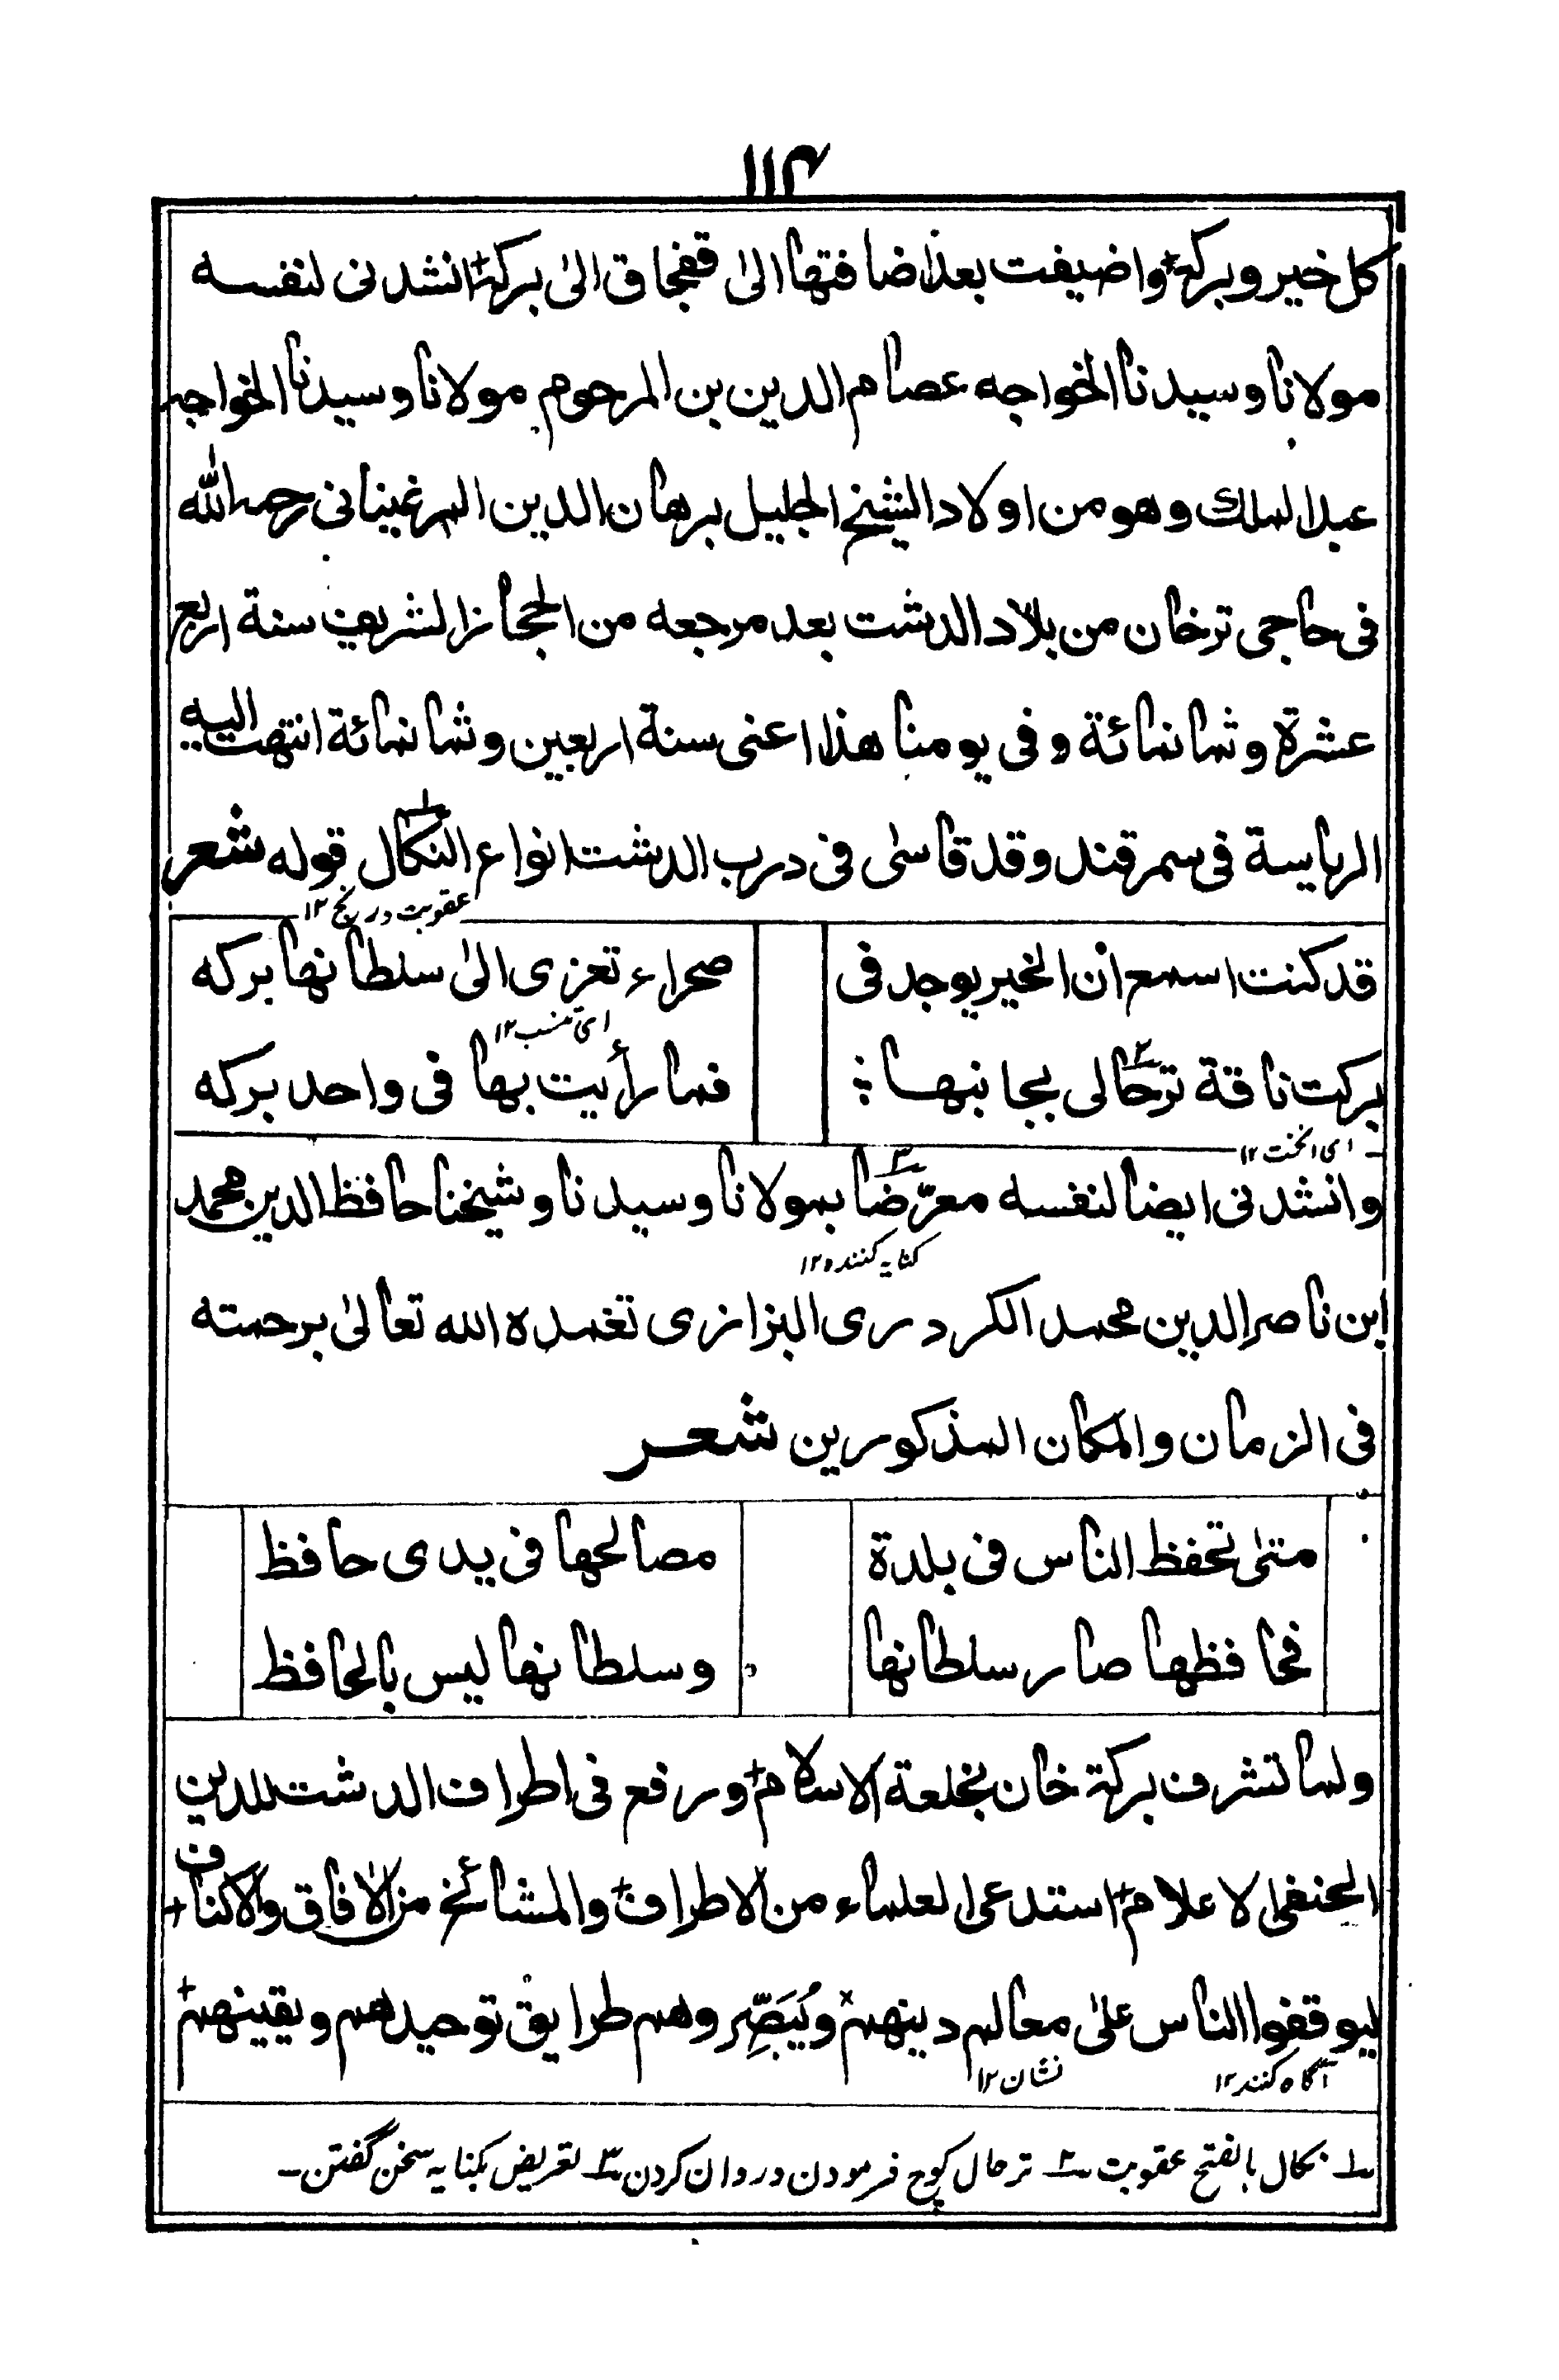 ۱۱۴
كل خير وبركة+ واضيفت بعد اضافتها الى قفجاق الىٰ بركة+ انشدنى لنفسه
مولانا وسيدنا الخواجه عصام الدين بن المرحوم مولانا وسيدنا الخواجه
عبد الملك وهو من اولاد الشيخ الجليل برهان الدين المرغينانى رحمه الله
فى حاجى ترخان من بلاد الدشت بعد مرجعه من الحجاز الشريف سنة اربع
عشرة وثمانمائة وفى يومنا هذا اعنى سنة اربعين وثمانمائة انتهت اليه
الرياسة فى سمرقند وقد قاسىٰ فى درب الدشت انواع النكال۱ قوله شعر
عقوبت ورنج ۱۲
قد كنت اسمع ان الخير يوجد فى صحراء تعزى الىٰ سلطانها بركه
اى تنسب ۱۲
بركت ناقة ترحالى۲ بجانبها فما رأيت بها فى واحد بركه
اى انخت ۱۲
وانشدنى ايضا لنفسه معرّضا۳ بمولانا وسيدنا وشيخنا حافظ الدين محمد
كنايه كننده ۱۲
ابن ناصر الدين محمد الكردرى البزازى تغمده الله تعالىٰ برحمته
فى الزمان والمكان المذكورين شعر
متىٰ تحفظ الناس فى بلدة مصالحها فى يدى حافظ
فحافظها صار سلطانها وسلطانها ليس بالحافظ
ولما تشرف بركة خان بخلعة الاسلام+ ورفع فى اطراف الدشت للدين
الحنفى الاعلام+ استدعى العلماء من الاطراف+ والمشائخ من الاٰفاق والاكناف+
ليوقفوا الناس علىٰ معالم دينهم+ ويُبَصِّروهم طرايق توحيدهم ويقينهم+
آگاه كنند ۱۲ نشان ۱۲
۱ نكال بالفتح عقوبت ۲ ترحال كوچ فرمودن وروان كردن ۳ تعريض بكنايه سخن گفتن -